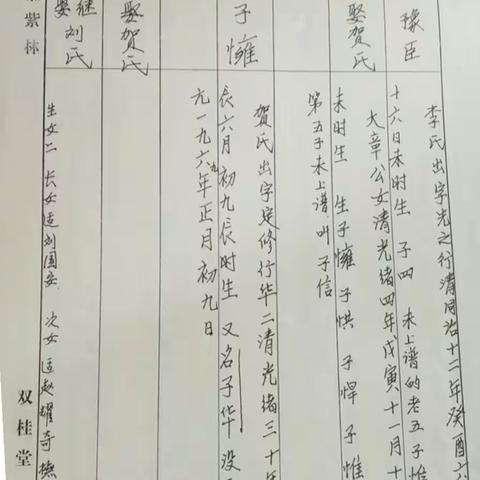 豫臣
李氏出字光之行清同治十二年癸酉六
十六日未时生 子四 未上谱的老五子惟
娶贺氏
大章公女清光绪四年戊寅十一月十
未时生 生子慵 子惧 子悍 子惟
第五子未上谱叫子信
子慵
贺氏出字定修行华二清光绪三十年
辰六月初九辰时生 又名子华 没
元一九六九年正月初九日
娶贺氏
继刘氏
娶
生女二 长女适刘国安 次女适赵耀奇
紫林
双桂堂